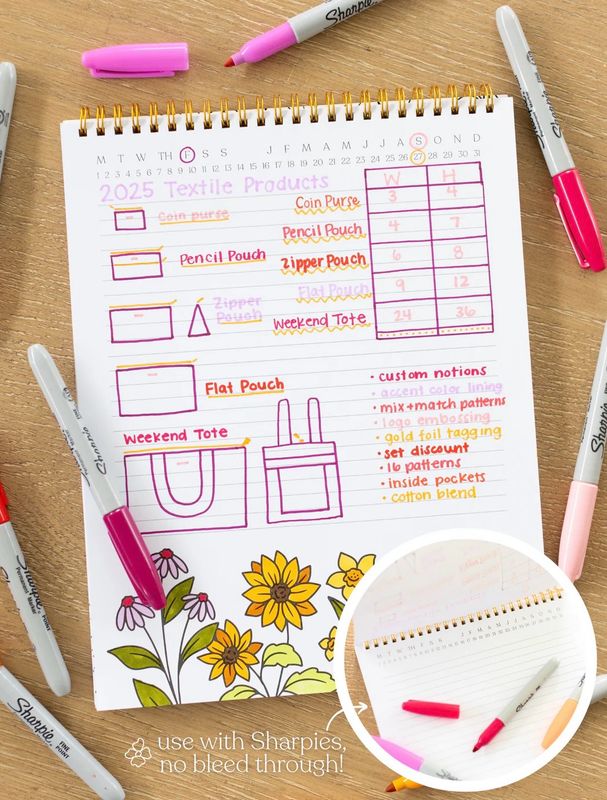 Sharpie
M T W TH F S S J F M A M J J A S O N D
1 2 3 4 5 6 7 8 9 10 11 12 13 14 15 16 17 18 19 20 21 22 23 24 25 26 27 28 29 30 31
2025 Textile Products
W H
Coin purse
Coin Purse 3 4
Pencil Pouch 4 7
Pencil Pouch
Zipper Pouch 6 8
Zipper
Pouch
Flat Pouch 9 12
Weekend Tote 24 36
Flat Pouch
• custom notions
• accent color lining
• mix+match patterns
• logo embossing
• gold foil tagging
• set discount
• 16 patterns
• inside pockets
• cotton blend
Weekend Tote
Sharpie
Sharpie
Sharpie
FINE POINT
use with Sharpies,
no bleed through!